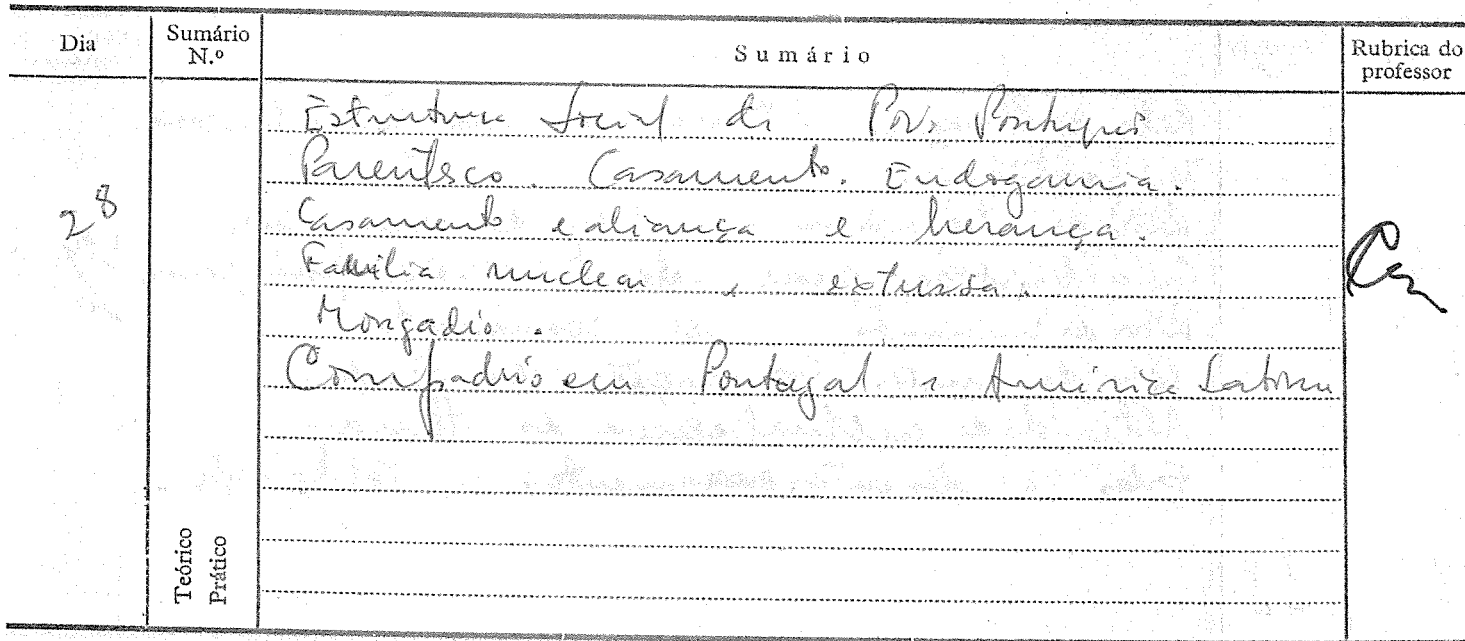 Dia
Sumário N.º
Sumário
Rubrica do professor
Estrutura Social do Povo Português
Parentesco. Casamento. Endogamia.
28
Casamento e aliança e herança.
Família nuclear e extensa.
Morgadio.
Compadrio em Portugal e América Latina
Teórico
Prático